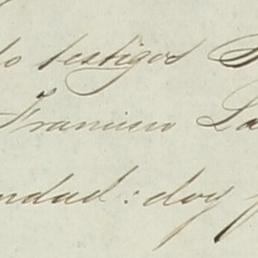 do testigos D
Francisco La
ndad: doy f